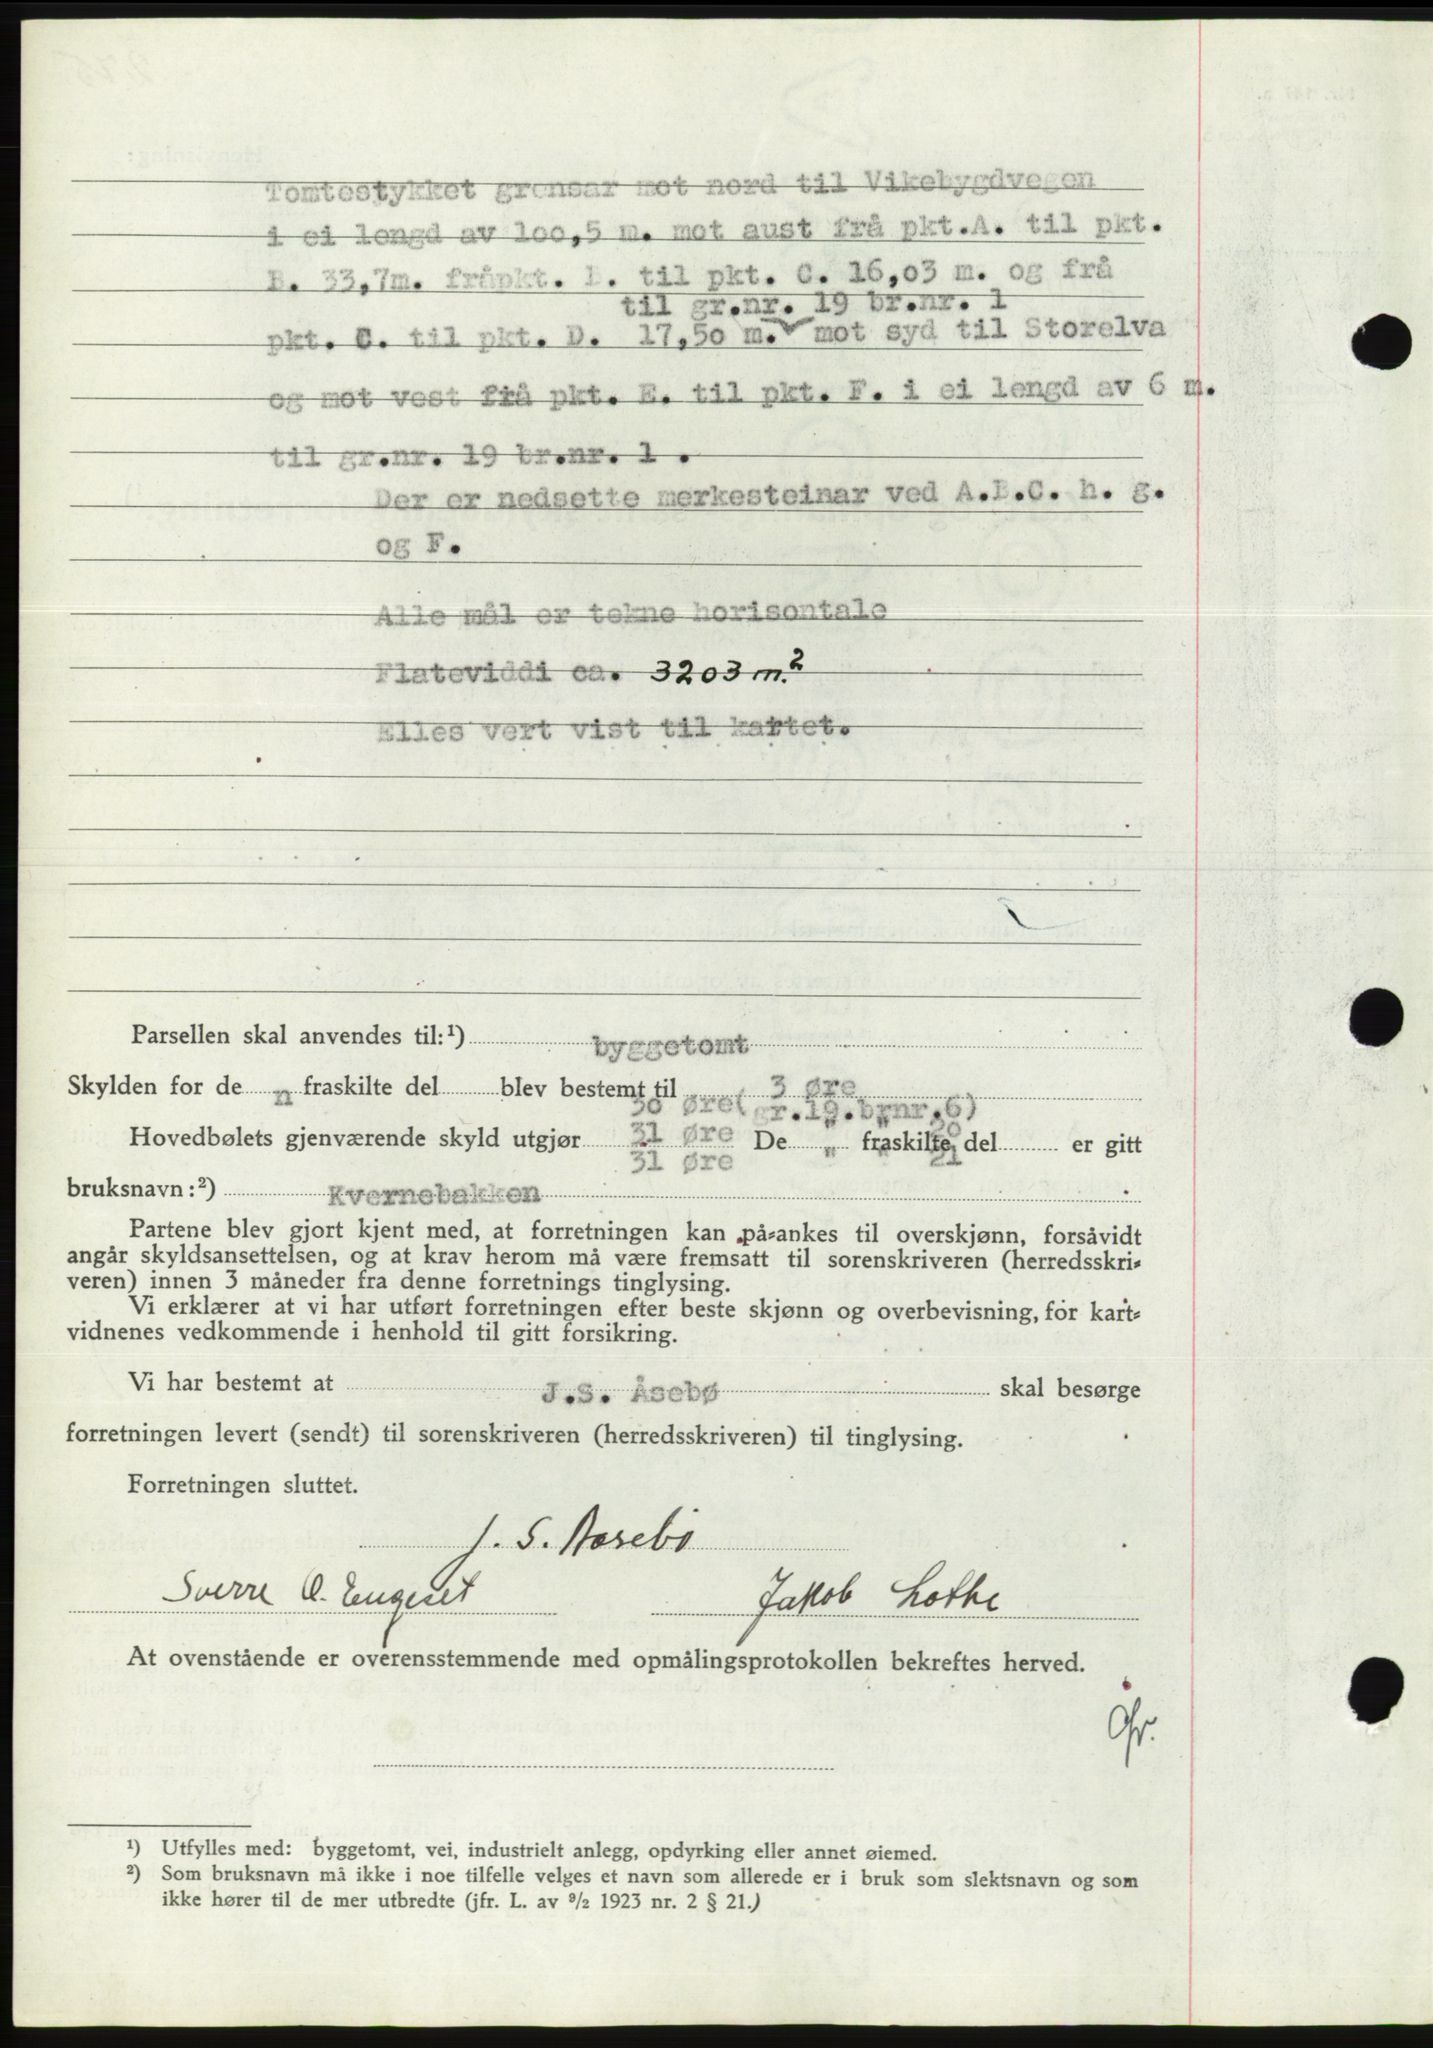 Tomtestykket grensar mot nord til Vikebygdvegen
i ei lengd av 100,5 m. mot aust frå pkt.A. til pkt.
B. 33,7m. fråpkt. B. til pkt. C. 16,03 m. og frå
til gr.nr. 19 br.nr. 1
pkt. C. til pkt. D. 17,50 m. mot syd til Storelva
og mot vest frå pkt. E. til pkt. F. i ei lengd av 6 m.
til gr.nr. 19 br.nr. 1 .
Der er nedsette merkesteinar ved A.B.C. h. g.
og F.
Alle mål er tekne horisontale
Flateviddi ca. 3203 m.²
Elles vert vist til kartet.
Parsellen skal anvendes til:¹) byggetomt
Skylden for de n fraskilte del blev bestemt til 3 Øre
30 Øre( gr.19.brnr.6)
Hovedbølets gjenværende skyld utgjør 31 Øre De " fraskilte " 20 del er gitt
31 Øre " " 21
bruksnavn:²) Kvernebakken
Partene blev gjort kjent med, at forretningen kan på-ankes til overskjønn, forsåvidt
angår skyldsansettelsen, og at krav herom må være fremsatt til sorenskriveren (herredsskri-
veren) innen 3 måneder fra denne forretnings tinglysing.
Vi erklærer at vi har utført forretningen efter beste skjønn og overbevisning, for kart-
vidnenes vedkommende i henhold til gitt forsikring.
Vi har bestemt at J.S. Åsebø skal besørge
forretningen levert (sendt) til sorenskriveren (herredsskriveren) til tinglysing.
Forretningen sluttet.
J. S. Aasebö
Sverre O. Engeset Jakob Lothe
At ovenstående er overensstemmende med opmålingsprotokollen bekreftes herved.
¹) Utfylles med: byggetomt, vei, industrielt anlegg, opdyrking eller annet øiemed.
²) Som bruksnavn må ikke i noe tilfelle velges et navn som allerede er i bruk som slektsnavn og som
ikke hører til de mer utbredte (jfr. L. av ⁹/₂ 1923 nr. 2 § 21.)